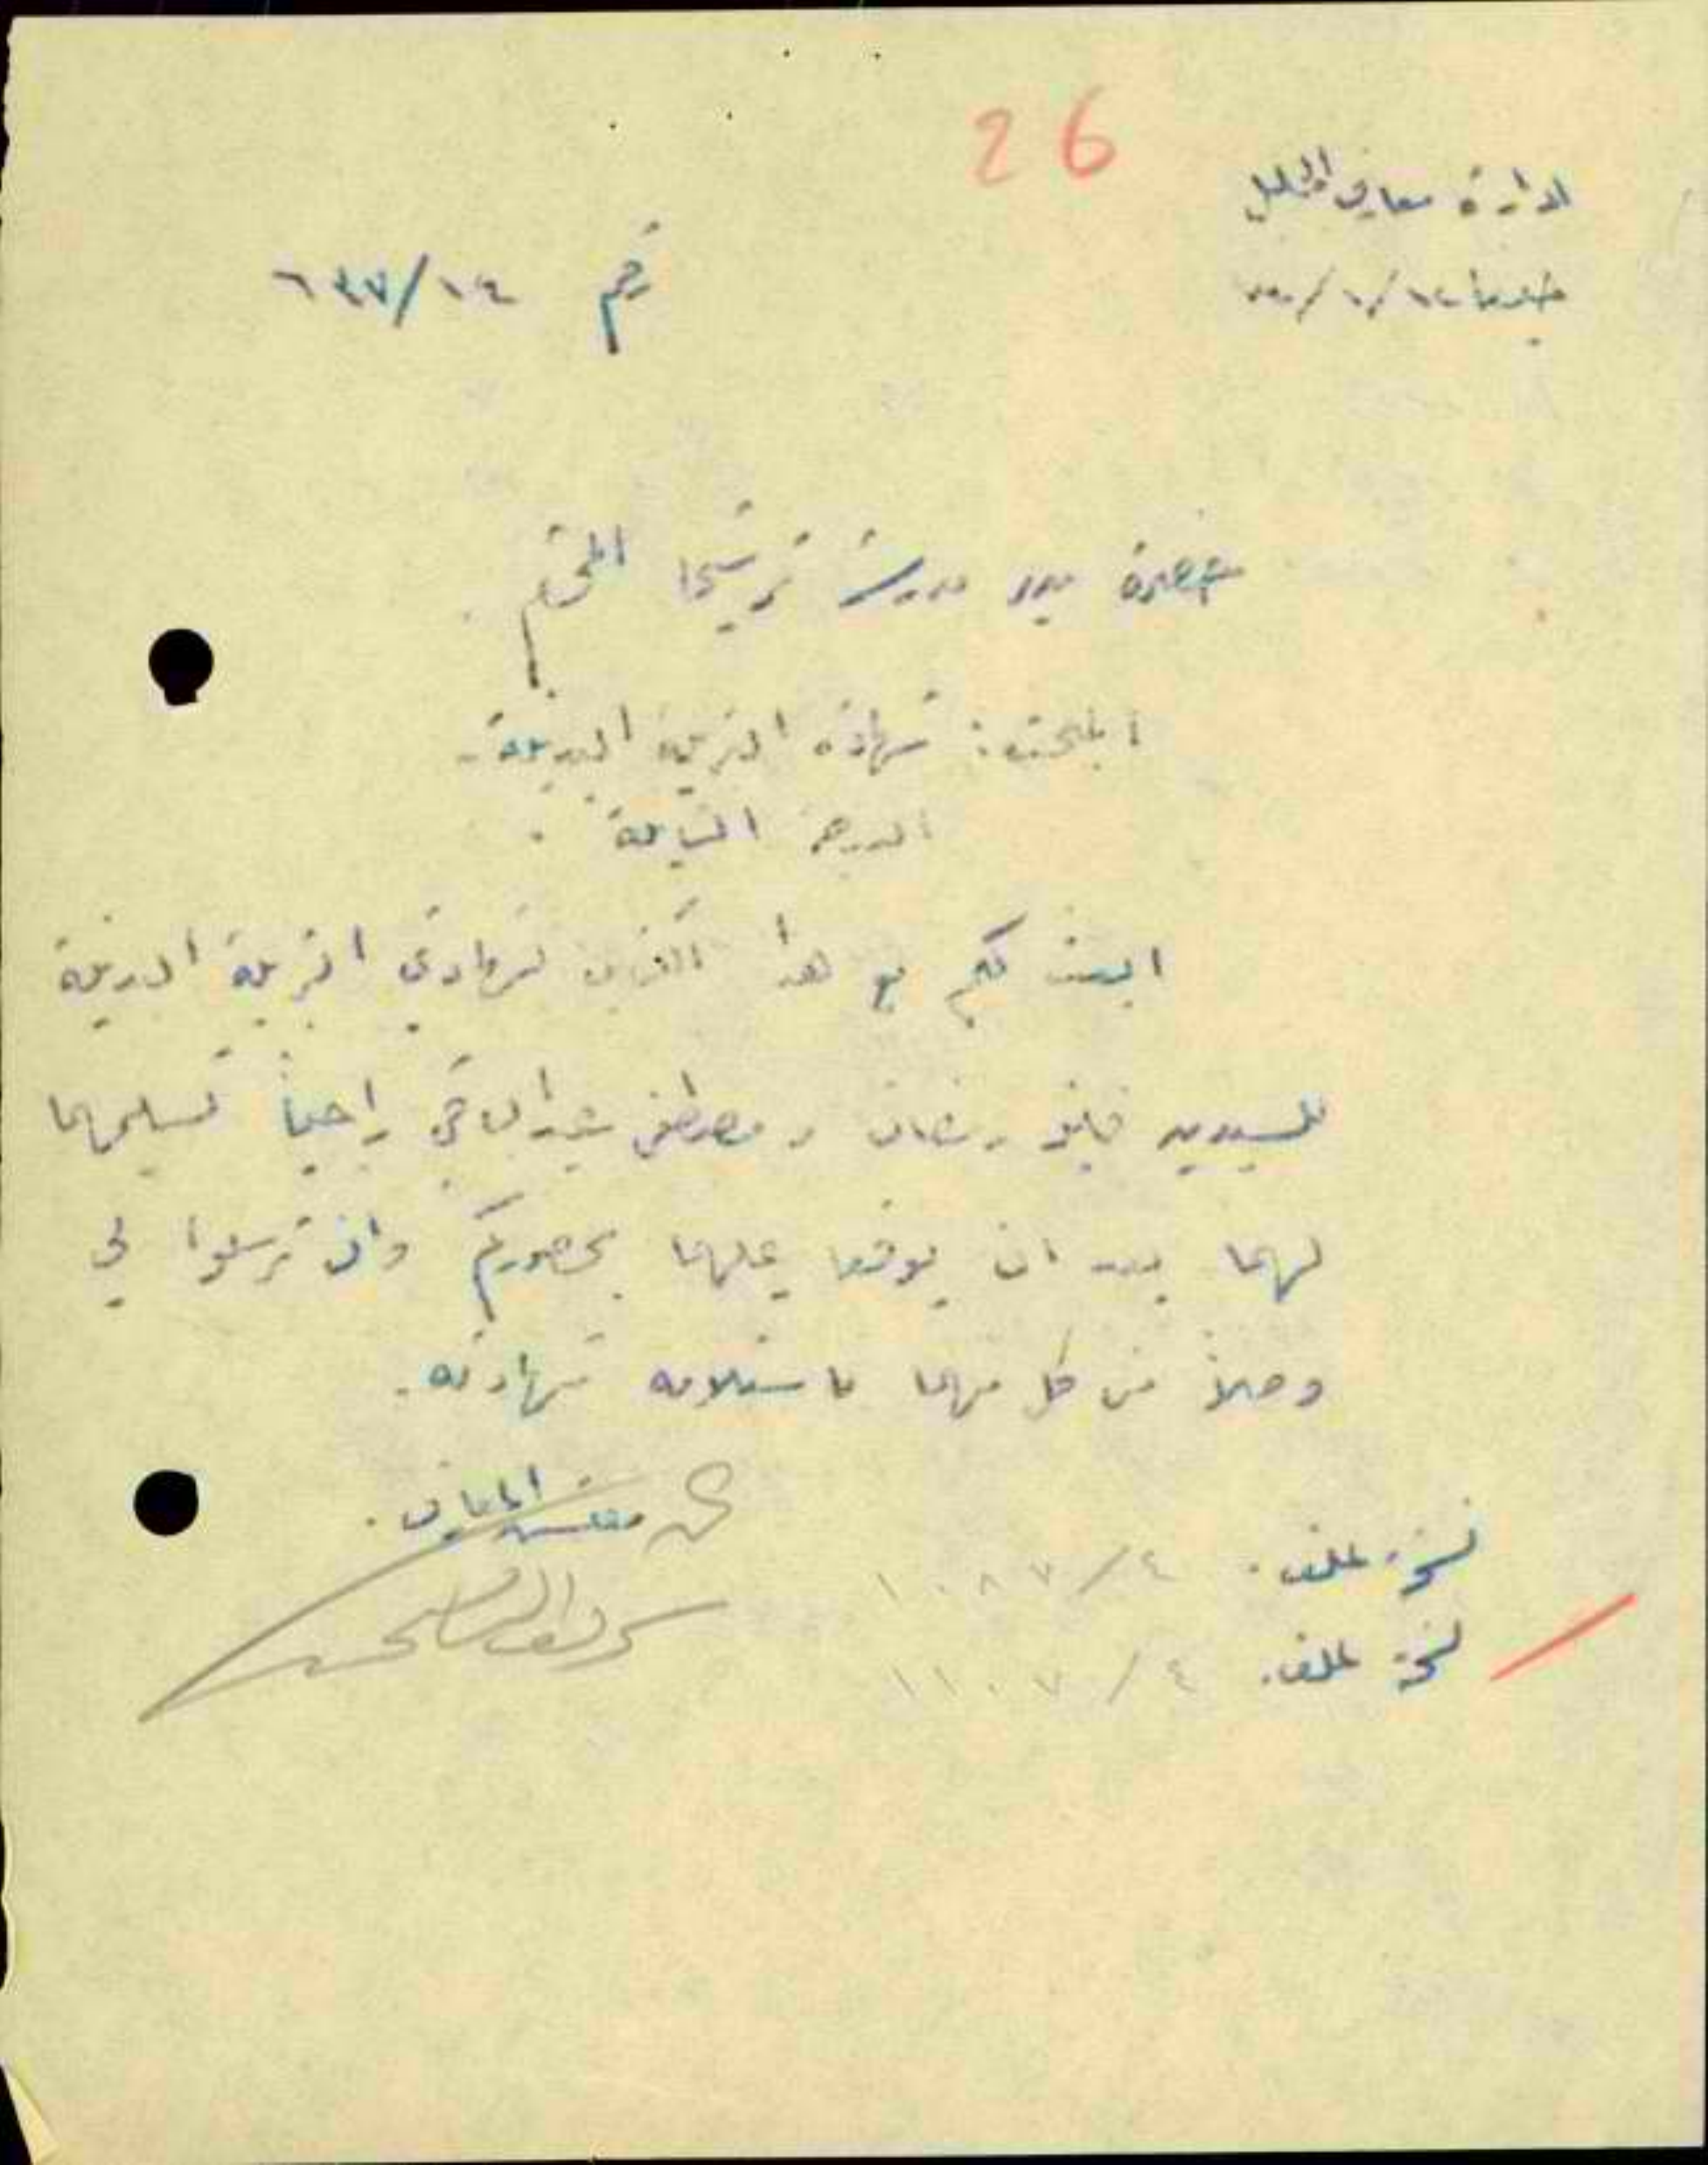 26
ادارة معارف الجليل
رقم ٦٣٧/١٤
حضرة مدير مدرسة ترشيحا المحترم
شهادة التربية البدنية
الدرجة السابعة .
ابعث لكم مع هذا الكتاب شهادتي التربية البدنية
للسيدين رمضان و مصطفى عبد الباقي راجياً تسليمهما
لهما بعد ان يوقعا عليهما بحضوركم وان ترسلوا لي
وصلاً من كل منهما باستلامه شهادته .
مفتش المعارف .
نسخة ملف . ١٠٨٧/٤
نسخة ملف . ١١٠٧/٤